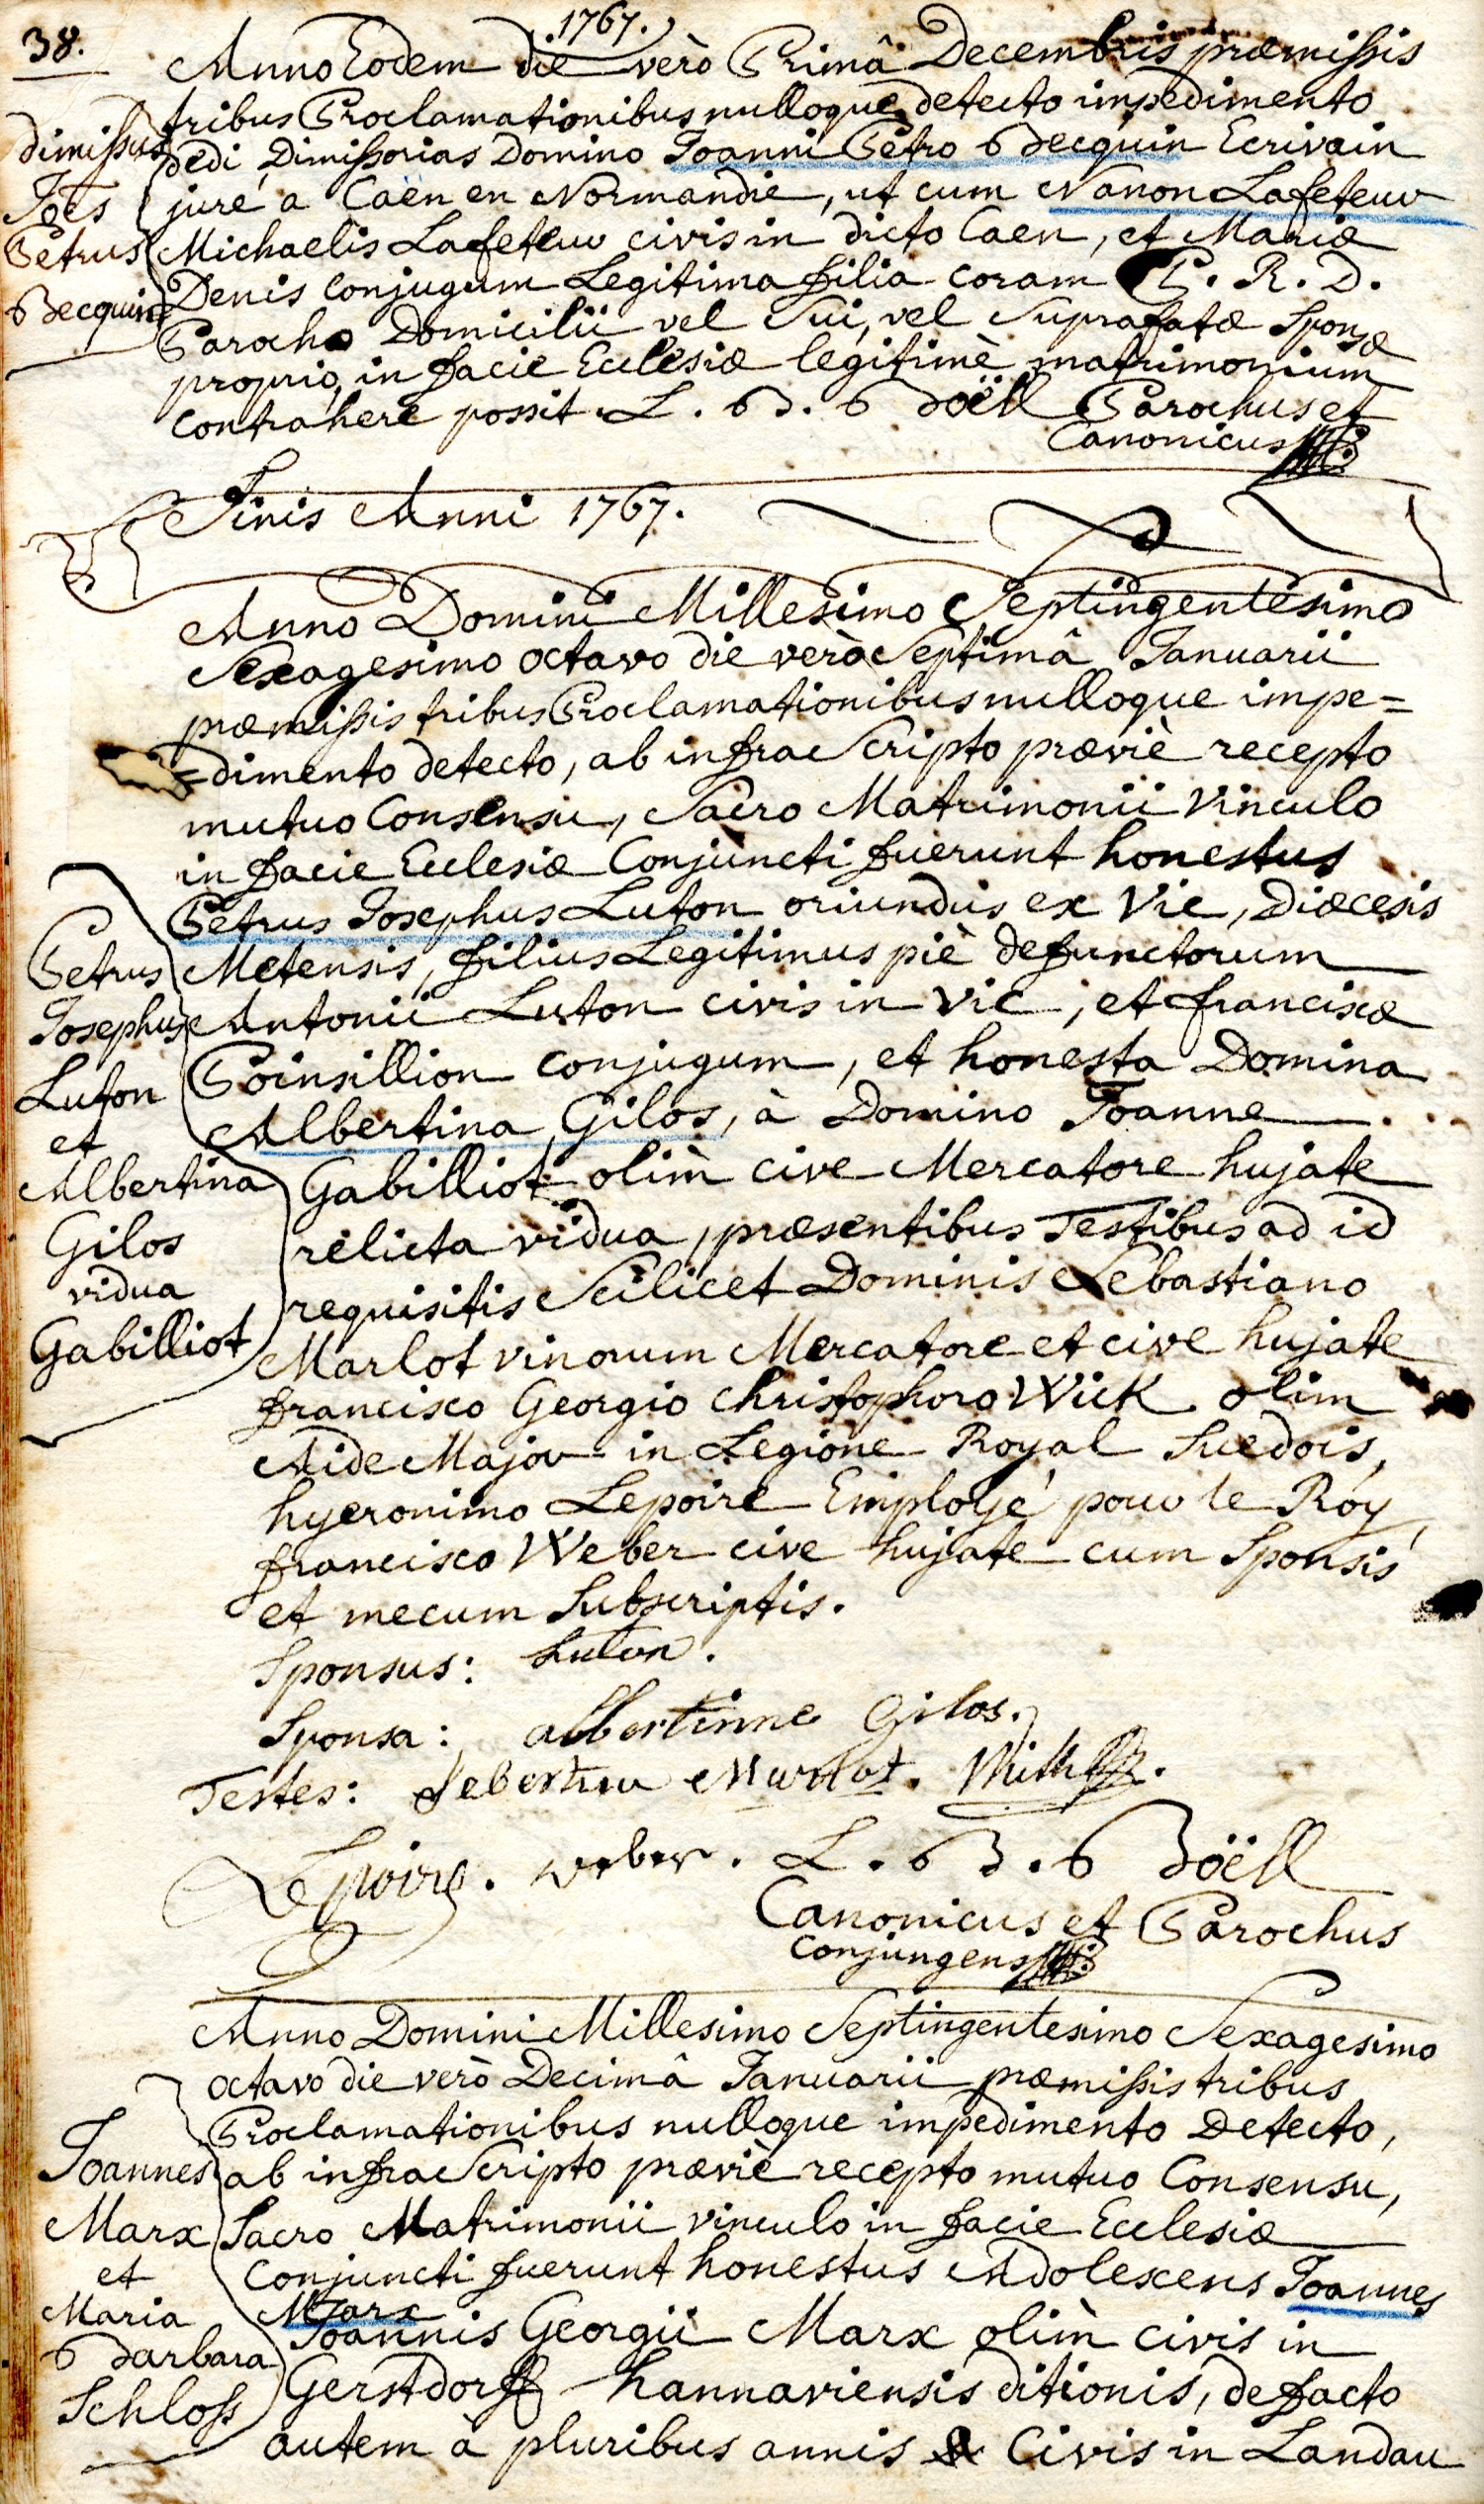 38.
1767.
Anno Eodem die verò Primâ Decembris præmissis
tribus Proclamationibus nulloque detecto impedimento
dedi Dimissorias Domino Joanni Petro Becquin Ecrivain
juré a Caën en Normandie, ut cum Nanon Lafeteur
Michaelis Lafeteur civis in dicto Caen, et Mariæ
Denis conjugum Legitima filia coram P. R. D.
Parocho Domicilii vel Sui, vel Suprafatæ Sponsæ
proprio, in facie Ecclesiæ legitimè matrimonium
contrahere possit. L. B. Böell Parochus et
Canonicus
dimissus
Joes
Petrus
Becquin
Finis Anni 1767.
Anno Domini Millesimo Septingentesimo
Sexagesimo octavo die verò Septimâ Januarii
præmissis tribus Proclamationibus nulloque impe=
=dimento detecto, ab infra Scripto præviè recepto
mutuo Consensu, Sacro Matrimonii Vinculo
in facie Ecclesiæ Conjuncti fuerunt honestus
Petrus Josephus Luton oriundus ex Vic, Diœcesis
Metensis, filius Legitimus piè defunctorum
Antonii Luton civis in Vic, et franciscæ
Poinsillion conjugum, et honesta Domina
Albertina Gilos, à Domino Joanne
Gabilliot olim cive Mercatore hujate
relicta vidua, præsentibus Testibus ad id
requisitis Scilicet Dominis Sebastiano
Marlot vinorum Mercatore et cive hujate
francisco Georgio Christophoro Wick olim
Aide Major in Legione Royal Suedois,
hyeronimo Lepoire Employé pour le Roy,
francisco Weber cive hujate cum Sponsis
et mecum Subscriptis.
Petrus
Josephus
Luton
et
Albertina
Gilos
vidua
Gabilliot
Sponsus: Luton.
Sponsa: albertinne Gilos.
Testes: Sebastien Marlot.
Lepoire. weber. L. B. Böell
Canonicus et Parochus
Conjungens
Anno Domini Millesimo Septingentesimo Sexagesimo
octavo die verò Decimâ Januarii præmissis tribus
Proclamationibus nulloque impedimento Detecto,
ab infra Scripto præviè recepto mutuo Consensu,
Sacro Matrimonii vinculo in facie Ecclesiæ
Conjuncti fuerunt honestus Adolescens Joannes
Marx
Joannis Georgii Marx olim civis in
Gerstdorff hannaviensis ditionis, defacto
autem à pluribus annis Civis in Landau
Joannes
Marx
et
Maria
Barbara
Schloss